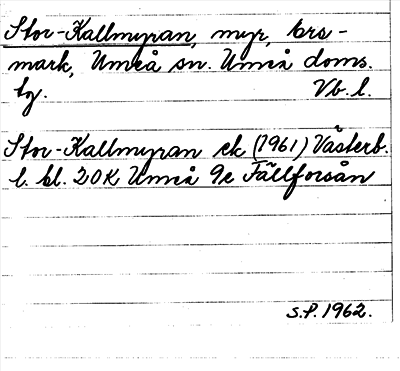 Stor-Kallmyran, myr, Ers-
mark, Umeå sn. Umeå doms.
tg. Vb. l.
Stor-Kallmyran ek (1961) Västerb.
l. bl. 20K Umeå 9e Fällforsån
S.P. 1962.